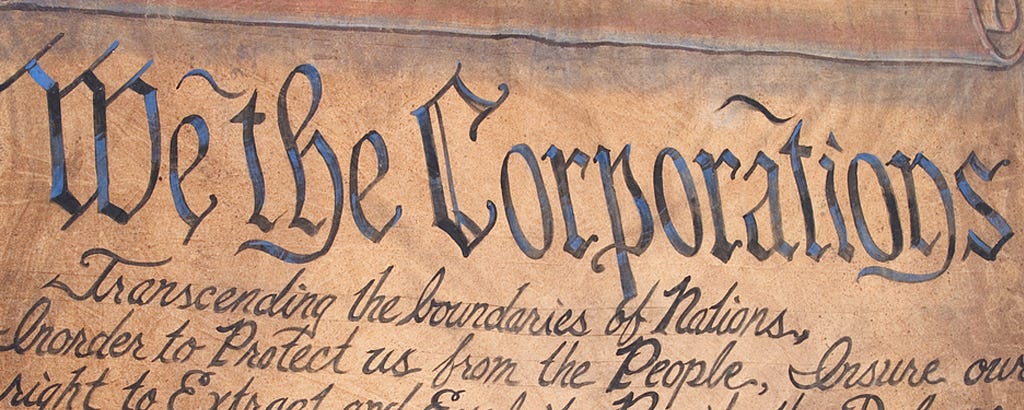 We the Corporations
Transcending the boundaries of Nations,
Inorder to Protect us from the People, Insure our
right to Extract and